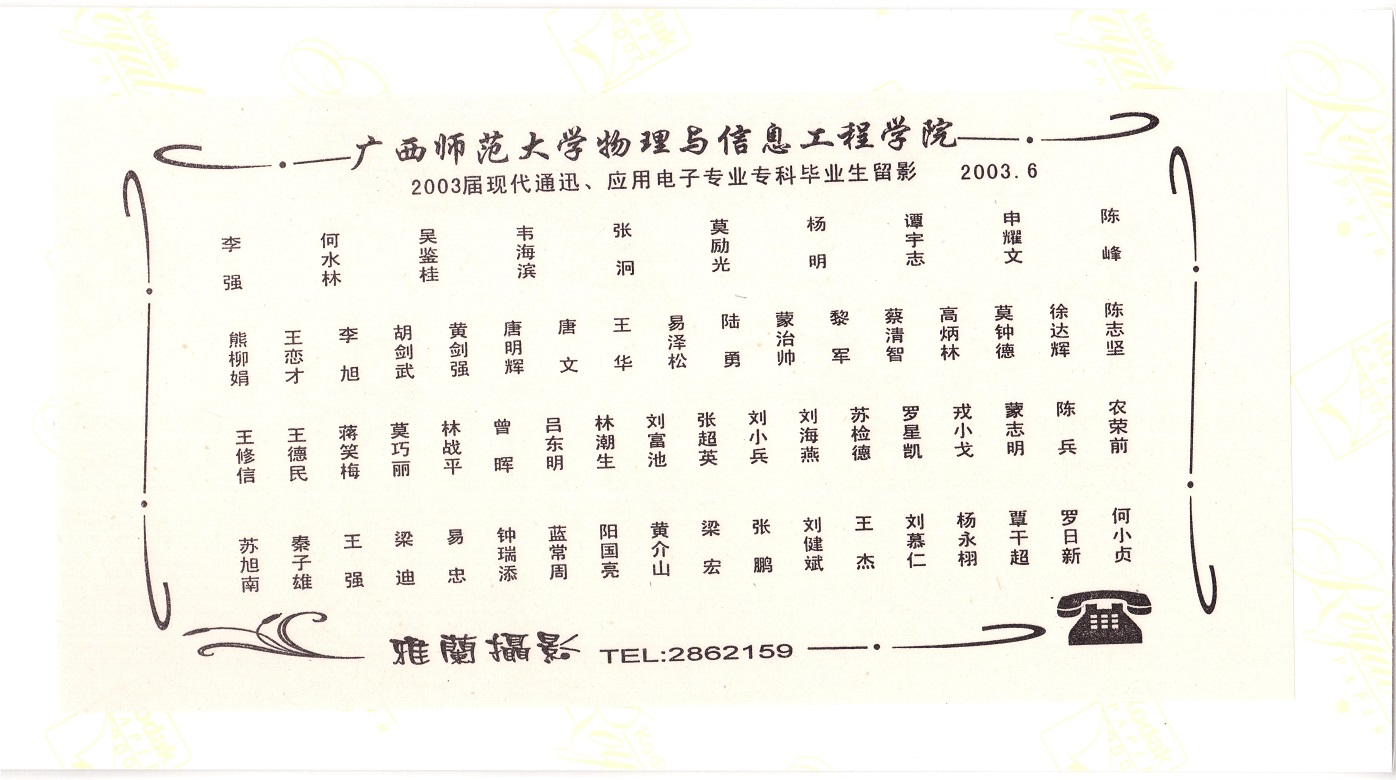 广西师范大学物理与信息工程学院
2003届现代通迅、应用电子专业专科毕业生留影 2003.6
李强 何水林 吴鉴桂 韦海滨 张泂 莫励光 杨明 谭宇志 申耀文 陈峰
熊柳娟 王恋才 李旭 胡剑武 黄剑强 唐明辉 唐文 王华 易泽松 陆勇 蒙治帅 黎军 蔡清智 高炳林 莫钟德 徐达辉 陈志坚
王修信 王德民 蒋笑梅 莫巧丽 林战平 曾晖 吕东明 林潮生 刘富池 张超英 刘小兵 刘海燕 苏检德 罗星凯 戎小戈 蒙志明 陈兵 农荣前
苏旭南 秦子雄 王强 梁迪 易忠 钟瑞添 蓝常周 阳国亮 黄介山 梁宏 张鹏 刘健斌 王杰 刘慕仁 杨永栩 覃干超 罗日新 何小贞
雅蘭攝影 TEL:2862159